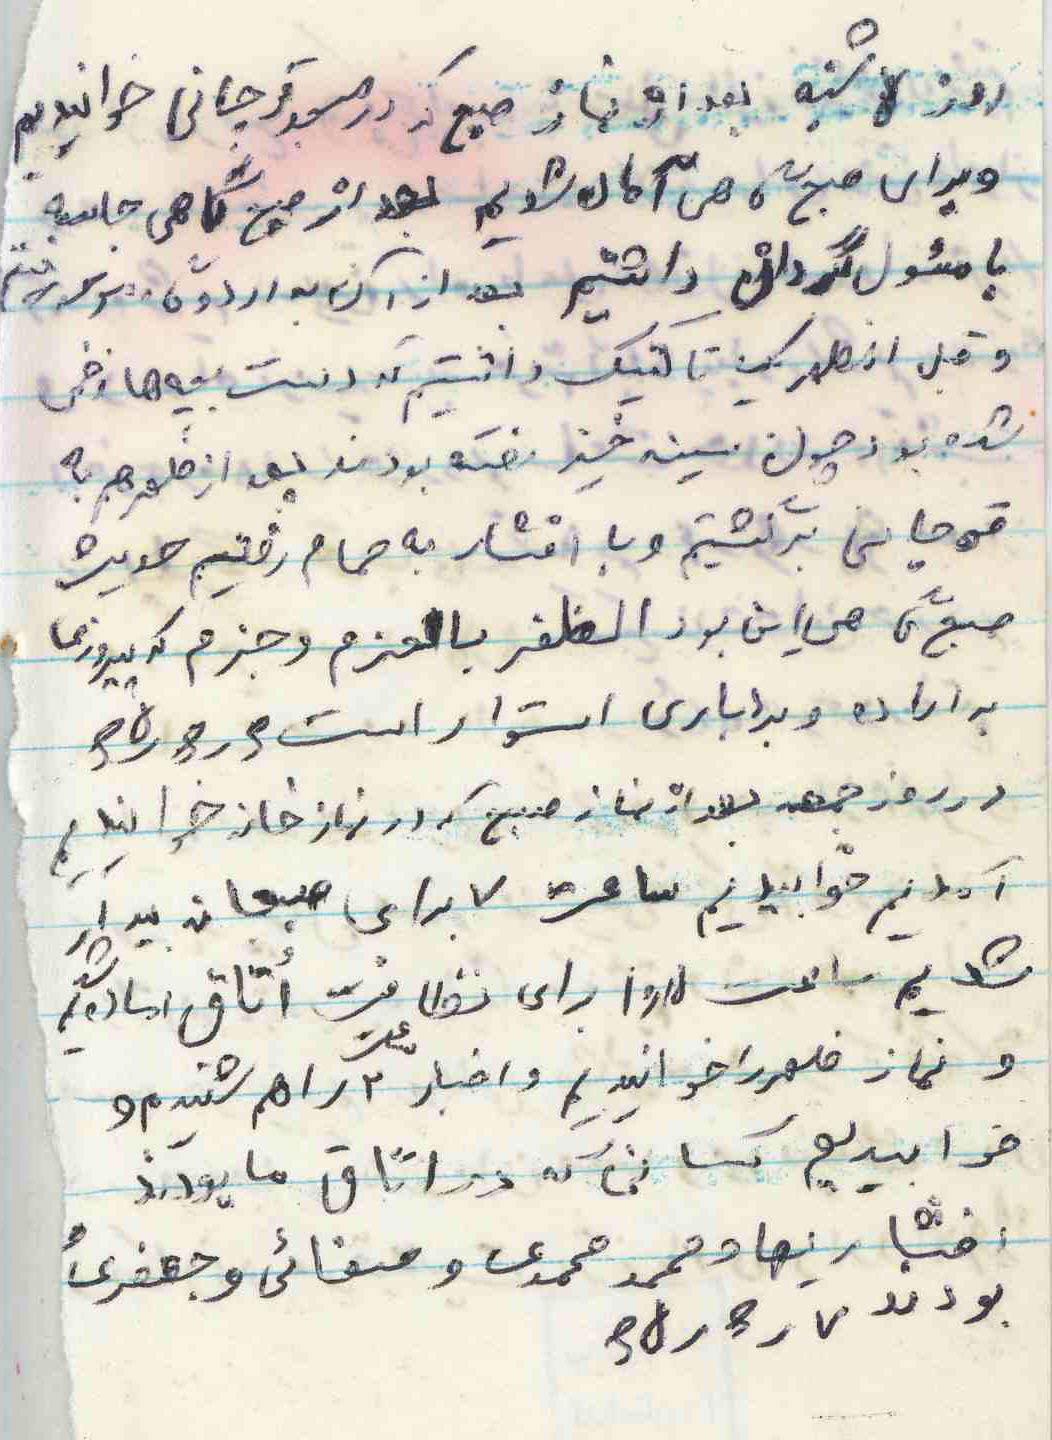 روز ۵ شنبه بعد از نماز صبح که در مسجد قوچانی خواندیم
و برای صبحگاهی آماده شدیم بعد از صبحگاهی جلسه
با مسئول گردان داشتیم بعد از آن به اردوگاه رفتیم
و قبل از ظهر یک تاکتیک داشتیم که دست بچه‌ها زخمی
شده بود چون سینه خیز رفته بودند بعد از ظهر هم به
قوچانی برگشتیم و با افشار به حمام رفتیم حدیث
صبحگاهی این بود الظفر بالعزم و جزم که پیروزیها
به اراده و بردباری استوار است ۶ر۳ر۶۵
در روز جمعه بعد از نماز صبح که در نماز خانه خواندیم
آمدیم خوابیدیم ساعت ۷ برای صبحانه بیدار
شدیم ساعت ۱۰٫۵ برای نظافت اُتاق آماده شدیم
و نماز ظهر را خواندیم و اخبار ساعت ۲ را هم شنیدم و
خوابیدیم کسانی که در اتاق ما بودند
افشار بهادر محمد محمدی و صفائی و جعفری
بودند ۷ر۳ر۶۵